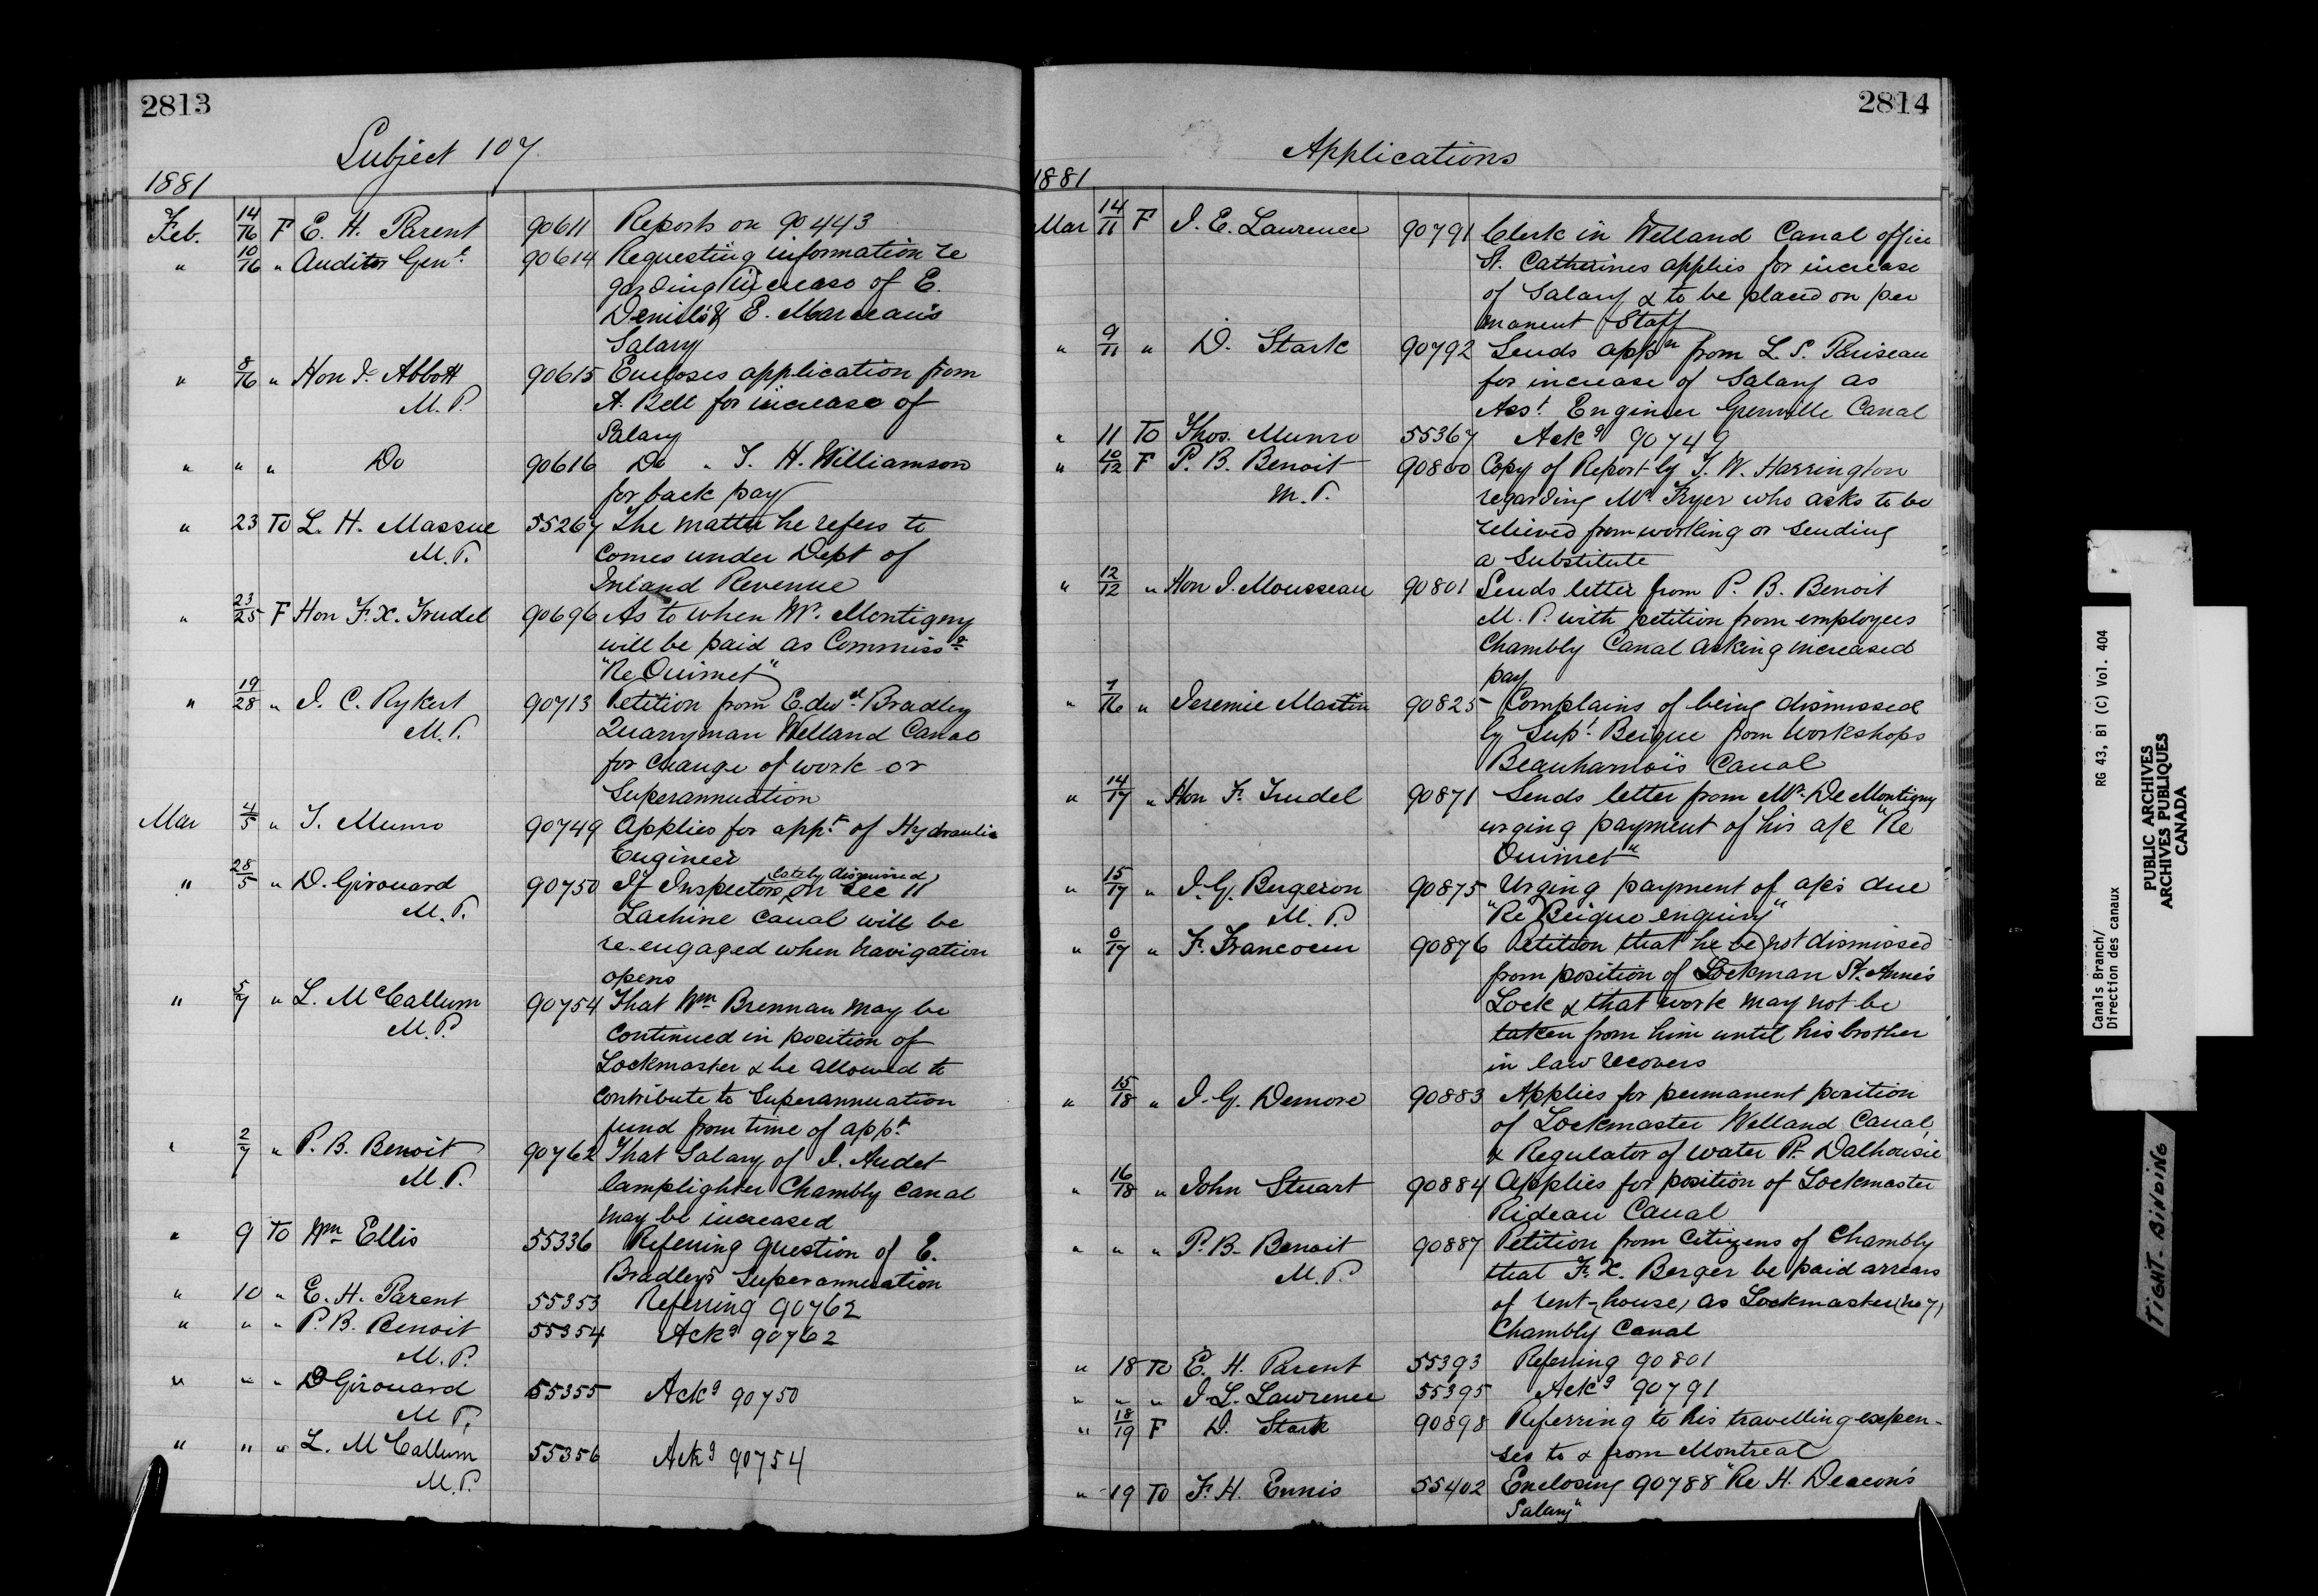 2813
Subject 107
1881
Feb. 14/16 F E. H. Parent 90611 Reports on 90443
" 10/16 " Auditor Genl. 90614 Requesting information re
garding increase of E.
Denisl's & E. Marceau's
Salary
" 8/16 " Hon J. Abbott 90615 Encloses application from
M.P. A. Bell for increase of
Salary
" " " Do 90616 Do " T. H. Williamson
for back pay
" 23 To L. H. Massue 55267 The matter he refers to
M.P. comes under Dept of
Inland Revenue
" 23/25 F Hon F. X. Trudel 90696 As to when Mr. Montigny
will be paid as Commissr
"Re Ouimet"
" 19/28 " J. C. Rykert 90713 Petition from Edwd. Bradley
M.P. Quarryman Welland Canal
for change of work or
Superannuation
Mar 4/5 " T. Munro 90749 Applies for appt. of Hydraulic
Engineer
" 28/5 " D. Girouard 90750 If Inspectors lately dismissed on Sec 11
M.P. Lachine Canal will be
re-engaged when navigation
opens
" 5/7 " L. McCallum 90754 That Wm Brennan may be
M.P. continued in position of
Lockmaster & be allowed to
contribute to Superannuation
fund from time of appt.
" 2/7 " P. B. Benoit 90762 That Salary of J. Audet
M.P. lamplighter Chambly Canal
may be increased
" 9 To Wm Ellis 55336 Referring question of E.
Bradley's Superannuation
" 10 " E. H. Parent 55353 Referring 90762
" " " P. B. Benoit 55354 Ackg 90762
M.P.
" " " D Girouard 55355 Ackg 90750
M.P.
" " " L. McCallum 55356 Ackg 90754
M.P.
2814
Applications
1881
Mar 14/11 F J. E. Lawrence 90791 Clerk in Welland Canal office
St. Catherines applies for increase
of Salary & to be placed on per
manent Staff
" 9/11 " D. Stark 90792 Sends appn from L. S. Pariseau
for increase of Salary as
Asst. Engineer Grenville Canal
" 11 To Thos. Munro 55367 Ackg 90749
" 10/12 F P. B. Benoit 90800 Copy of Report by T. W. Harrington
M.P. regarding Mr. Fryer who asks to be
relieved from working or sending
a substitute
" 12/12 " Hon J. Mousseau 90801 Sends letter from P. B. Benoit
M.P. with petition from employees
Chambly Canal asking increased
pay
" 7/16 " Jeremie Martin 90825 Complains of being dismissed
by Supt. Beique from workshops
Beauharnois Canal
" 14/17 " Hon F. Trudel 90871 Sends letter from Mr. De Montigny
urging payment of his a/c "Re
Ouimet"
" 15/17 " J. G. Bergeron 90875 Urging payment of a/cs due
M.P. "Re Beique enquiry"
" 0/17 " F. Francoeur 90876 Petition that he be not dismissed
from position of Lockman St. Anne's
Lock & that work may not be
taken from him until his brother
in law recovers
" 15/18 " J. G. Demore 90883 Applies for permanent position
of Lockmaster Welland Canal,
& Regulator of water Pt. Dalhousie
" 16/18 " John Stuart 90884 Applies for position of Lockmaster
Rideau Canal
" " " P. B. Benoit 90887 Petition from Citizens of Chambly
M.P. that F. X. Berger be paid arrears
of rent (house) as Lockmaster (No 7)
Chambly Canal
" 18 To E. H. Parent 55393 Referring 90801
" " " J. L. Lawrence 55395 Ackg 90791
" 18/19 F D. Stark 90898 Referring to his travelling expen-
ses to & from Montreal
" 19 To F. H. Ennis 55402 Enclosing 90788 "Re H. Deacon's
Salary"
Canals Branch/
Direction des canaux
RG 43, B1 (C) Vol. 404
PUBLIC ARCHIVES
ARCHIVES PUBLIQUES
CANADA
TIGHT BINDING